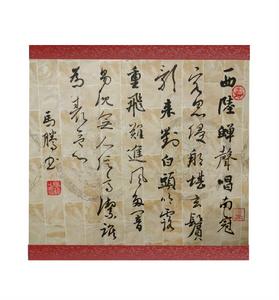 西陸蟬聲唱南冠
客思侵那堪玄鬢
影来對白頭吟露
重飛難進風多響
易沉無人信高潔誰
為表予心
馬騰书